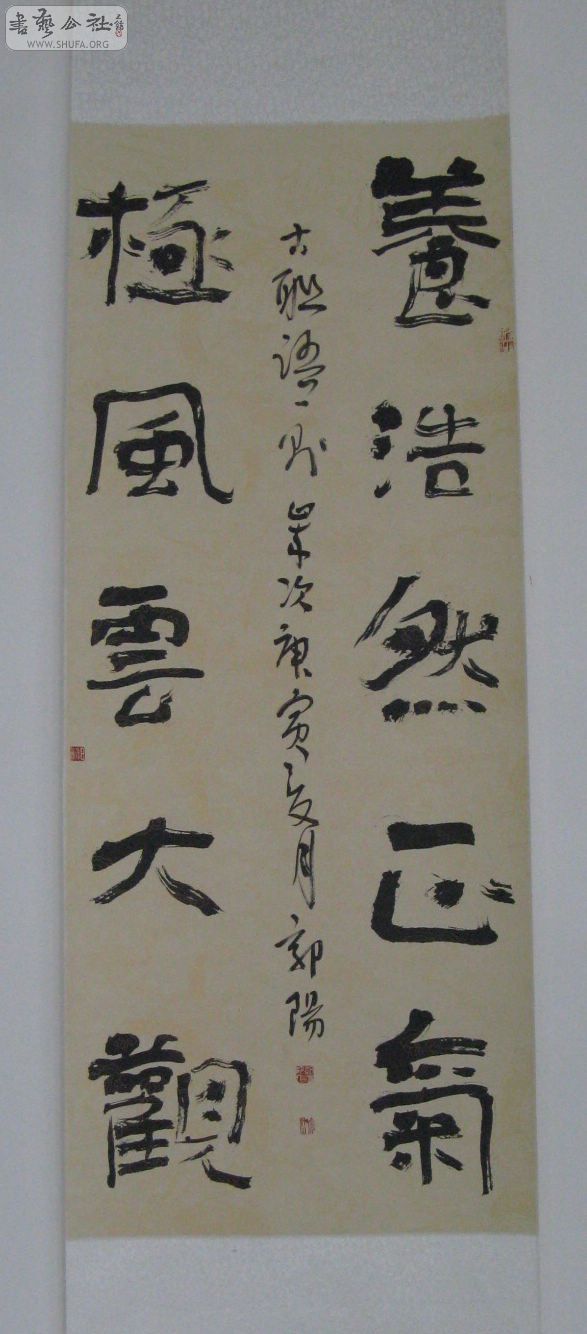 書藝公社
WWW.SHUFA.ORG
養浩然正氣
極風雲大觀
古聯語一則 歲次庚寅夏月 郭陽